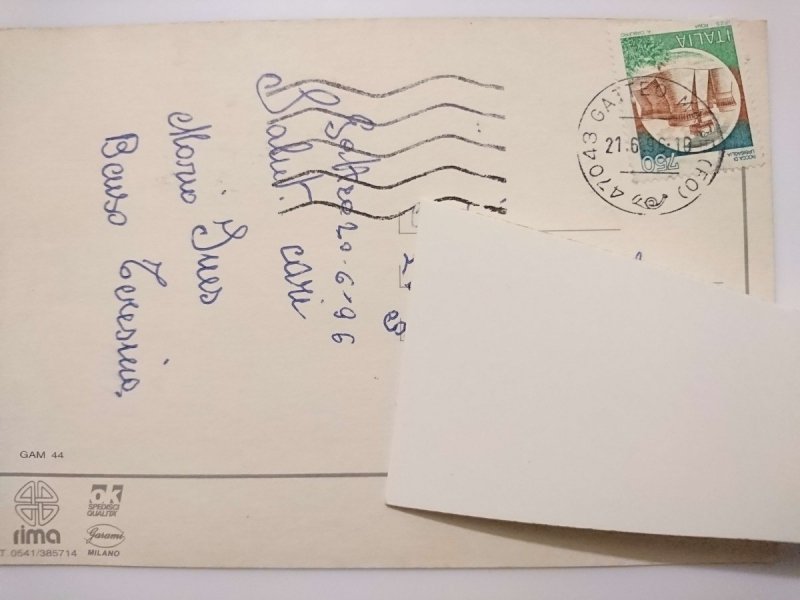 20-6-96
Saluti cari
Mario Ines
Teresina
ITALIA
750
ROCCA DI
URBISAGLIA
47043 GATTEO M
(FO)
21.6
GAM 44
rima
T. 0541/385714
ok
SPEDISCI
QUALITÀ
Garami
MILANO